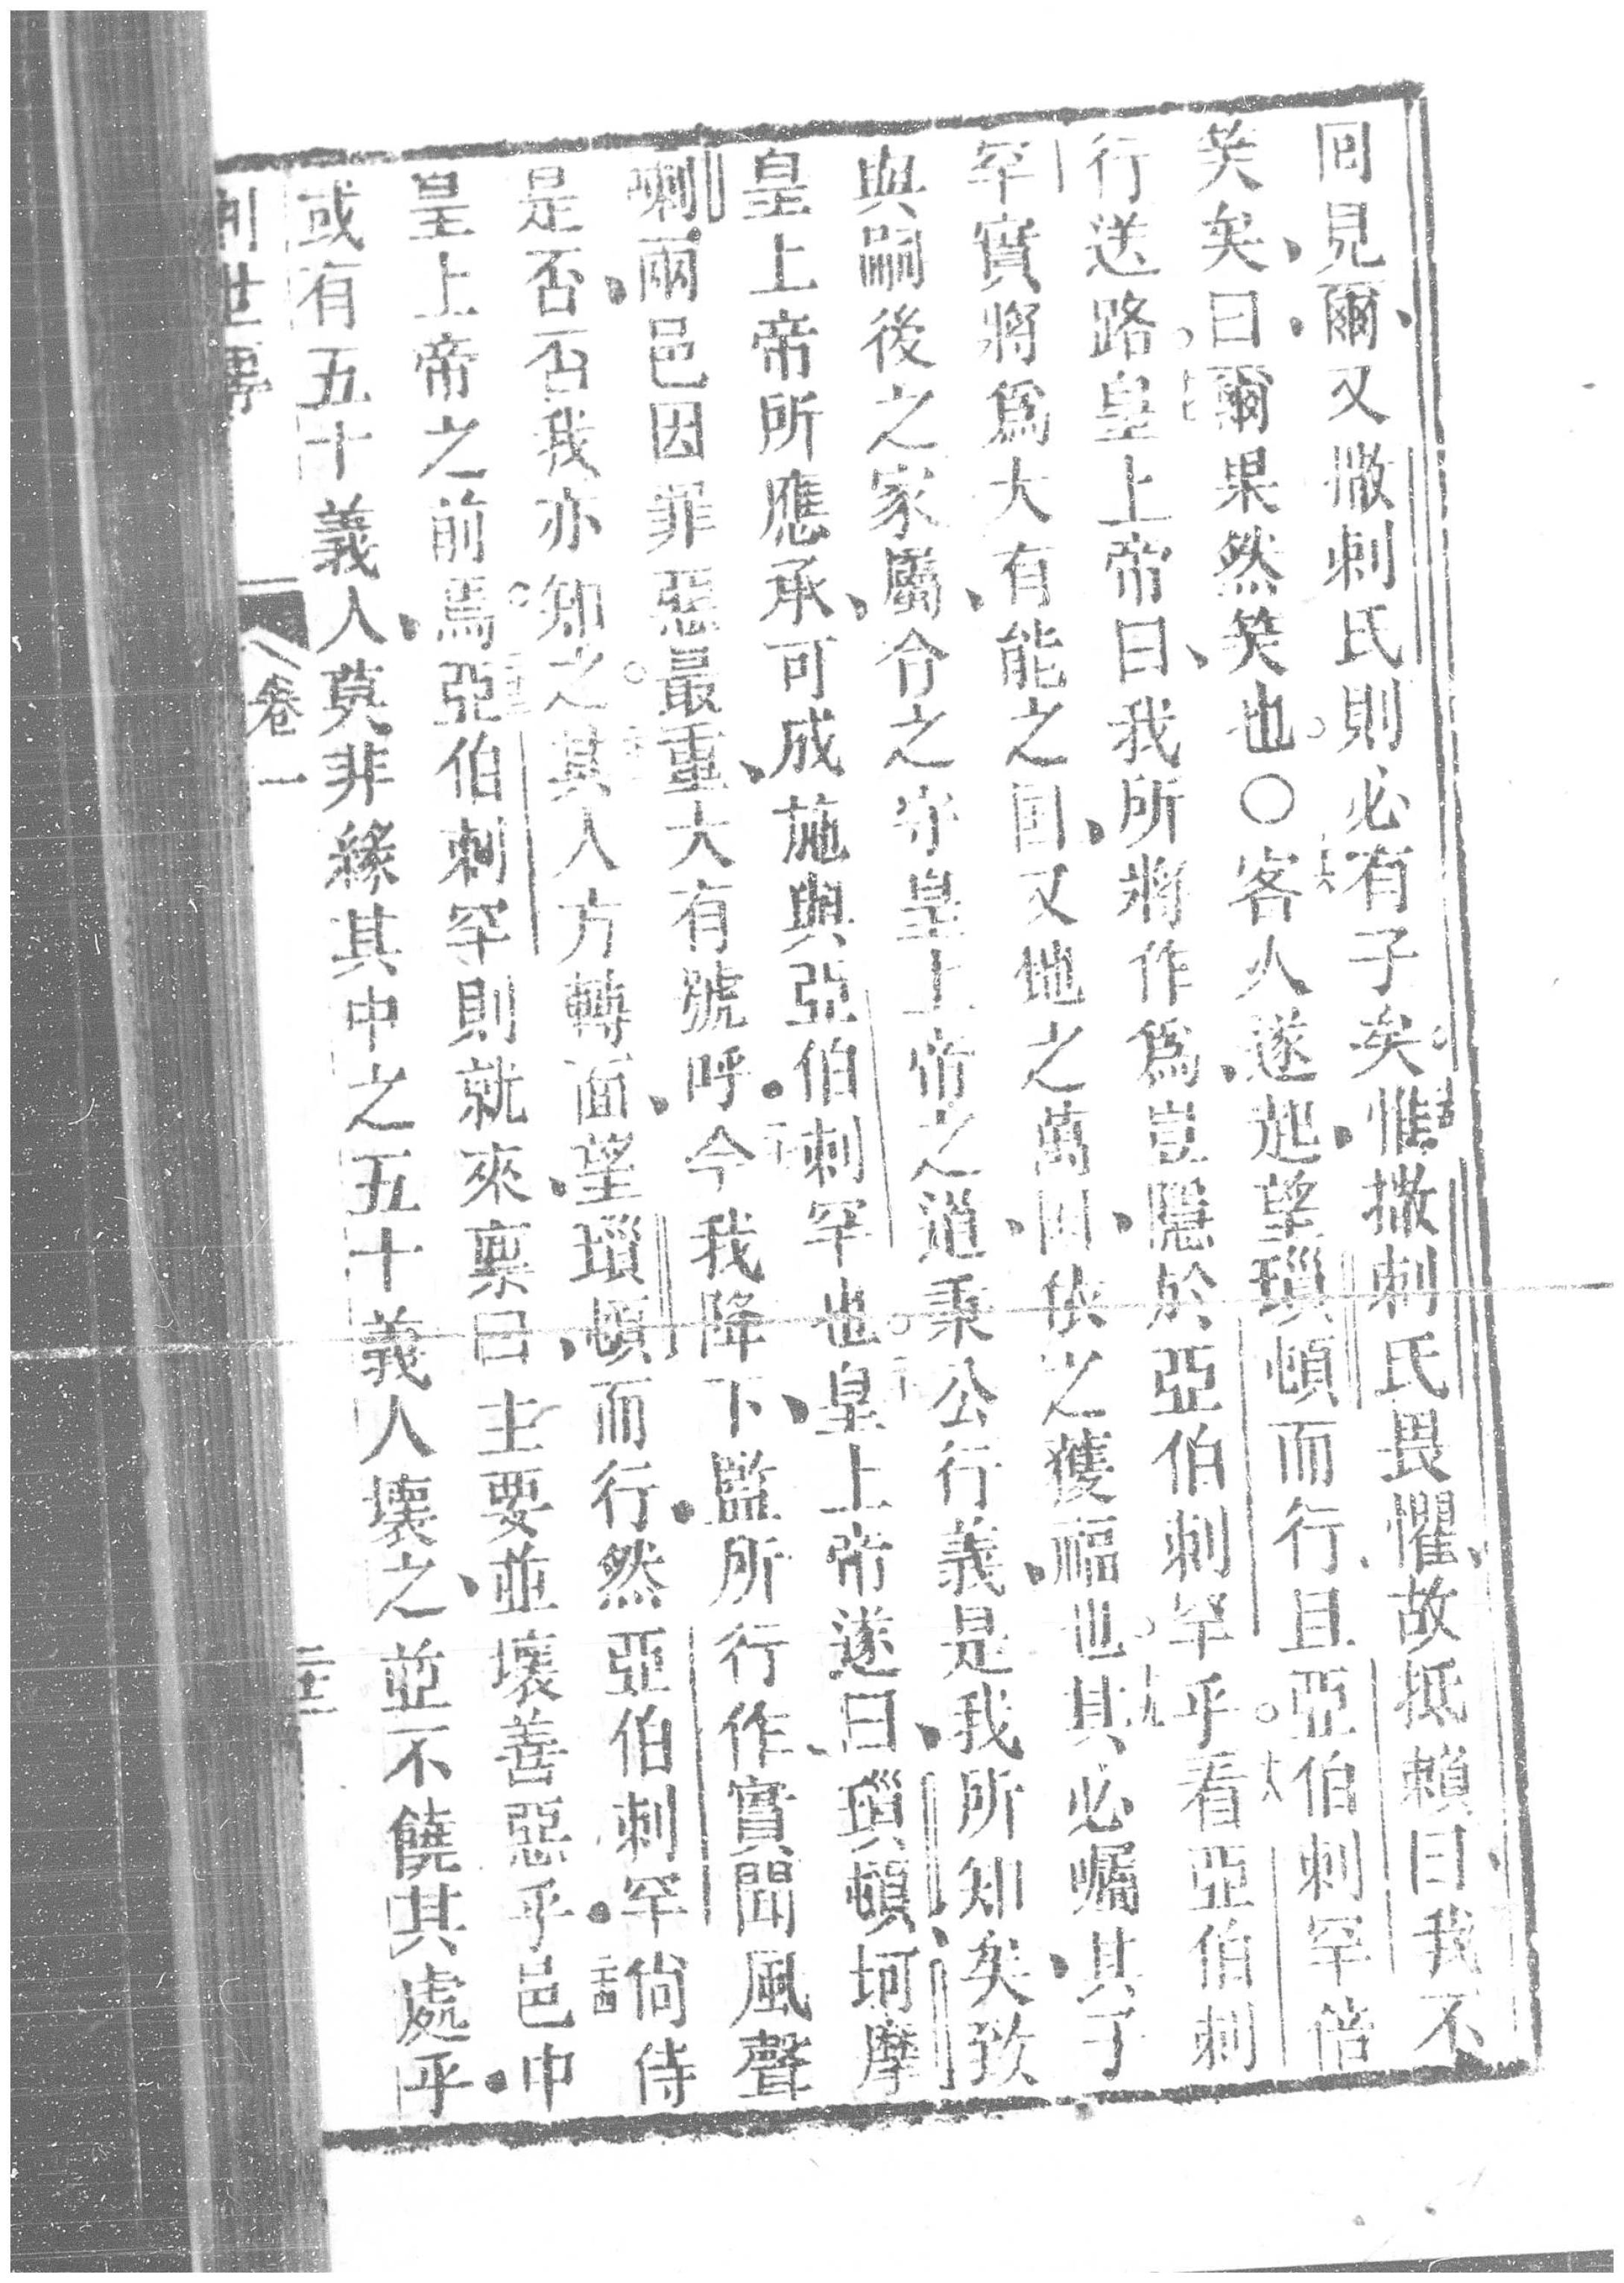 回見爾、又撒剌氏則必有子矣。惟撒剌氏畏懼、故抵賴曰、我不
笑矣、曰、爾果然笑也。○客人遂起、望瑣頓而行、且亞伯剌罕偕
行送路。皇上帝曰、我所將作爲、豈隱於亞伯剌罕乎。看亞伯剌
罕實將爲大有能之國、又地之萬國、依之獲福也。其必囑其子
與嗣後之家屬、令之守皇上帝之道、秉公行義、是我所知矣、致
皇上帝所應承、可成施與亞伯剌罕也。皇上帝遂曰、瑣頓、坷摩
喇、兩邑因罪惡最重、大有號呼。今我降下、監所行作、實聞風聲
是否、否我亦知之。其人方轉面、望瑣頓而行。然亞伯剌罕尙侍
皇上帝之前焉。亞伯剌罕則就來稟曰、主要並壞善惡乎。邑中
或有五十義人、莫非緣其中之五十義人壞之、並不饒其處乎。
創世 卷一